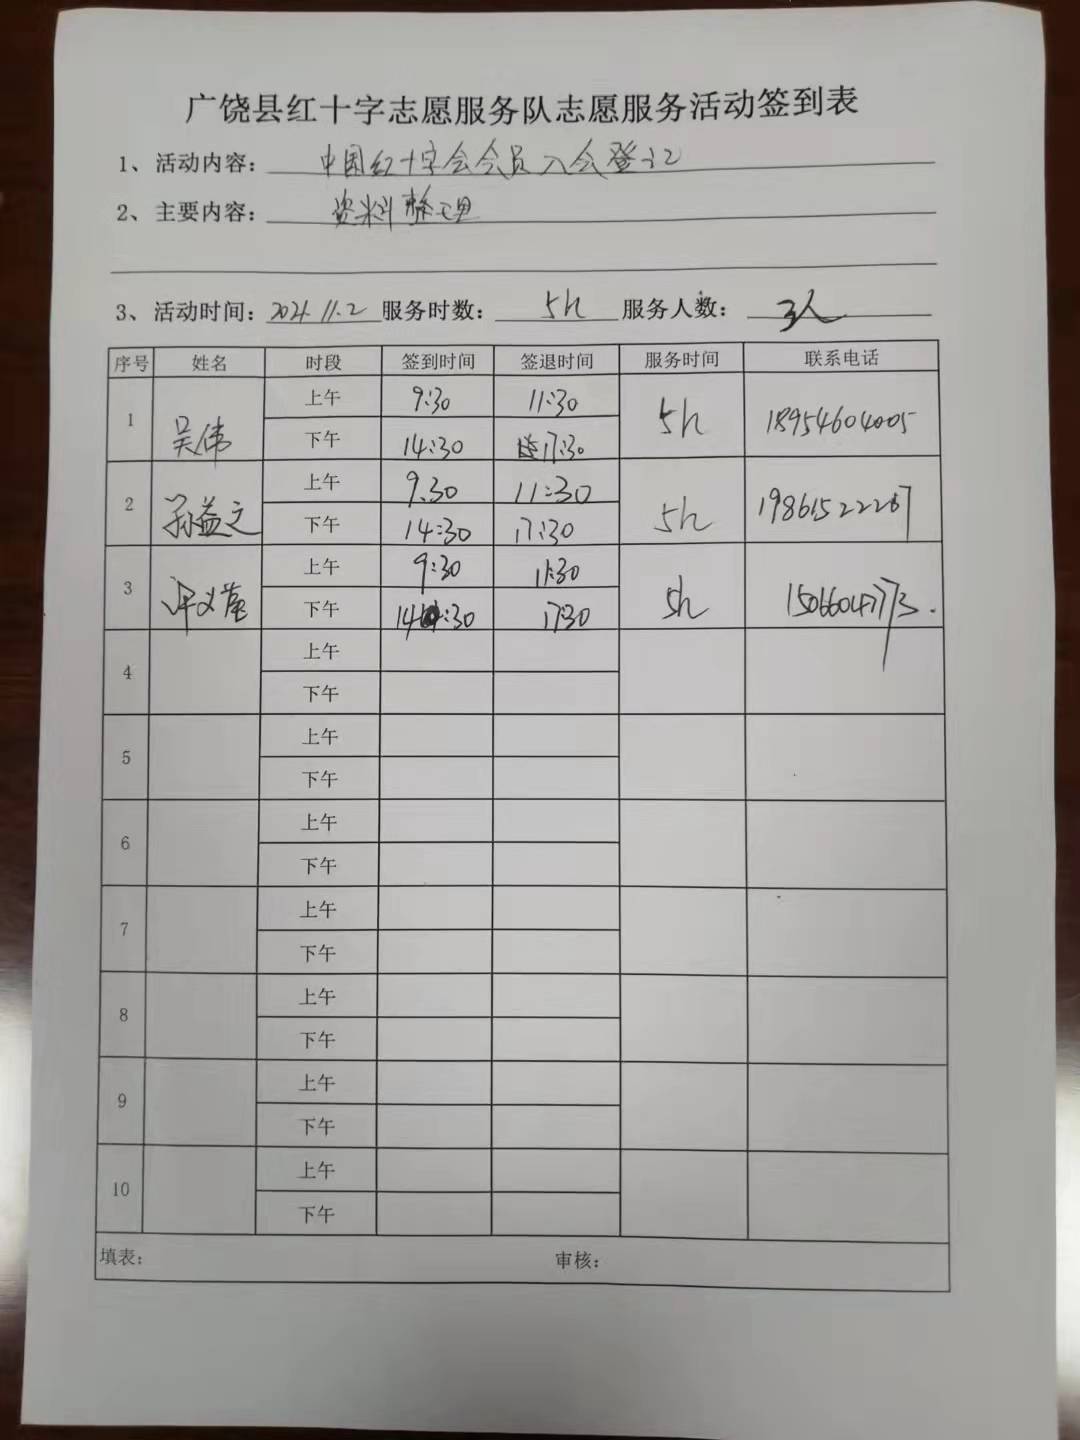 广饶县红十字志愿服务队志愿服务活动签到表
1、活动内容：中国红十字会会员入会登记
2、主要内容：资料整理
3、活动时间：2021.11.2 服务时数：5h 服务人数：3人
序号 姓名 时段 签到时间 签退时间 服务时间 联系电话
1 吴伟 上午 9:30 11:30 5h 18954604005
下午 14:30 17:30
2 孙益文 上午 9.30 11:30 5h 19861522267
下午 14:30 17:30
3 上午 9:30 11:30 5h 15066047773.
下午 14:30 17:30
4 上午
下午
5 上午
下午
6 上午
下午
7 上午
下午
8 上午
下午
9 上午
下午
10 上午
下午
填表： 审核：